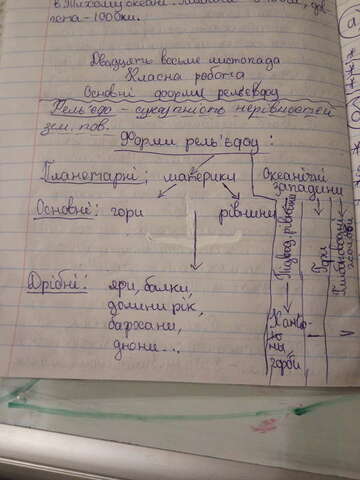 в Тихому океані.
Двадцять восьме листопада
Класна робота
Основні форми рельєфу
Рельєф - сукупність нерівностей
зем. пов.
Форми рельєфу:
Планетарні: материки Океанічні западини
Основні: гори рівнини
Підвод. рівнини
Гори
Дрібні: яри, балки,
долини рік,
бархани,
дюни...
горби